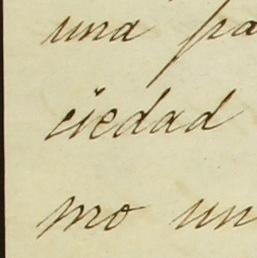 una pa
ciedad
mo un